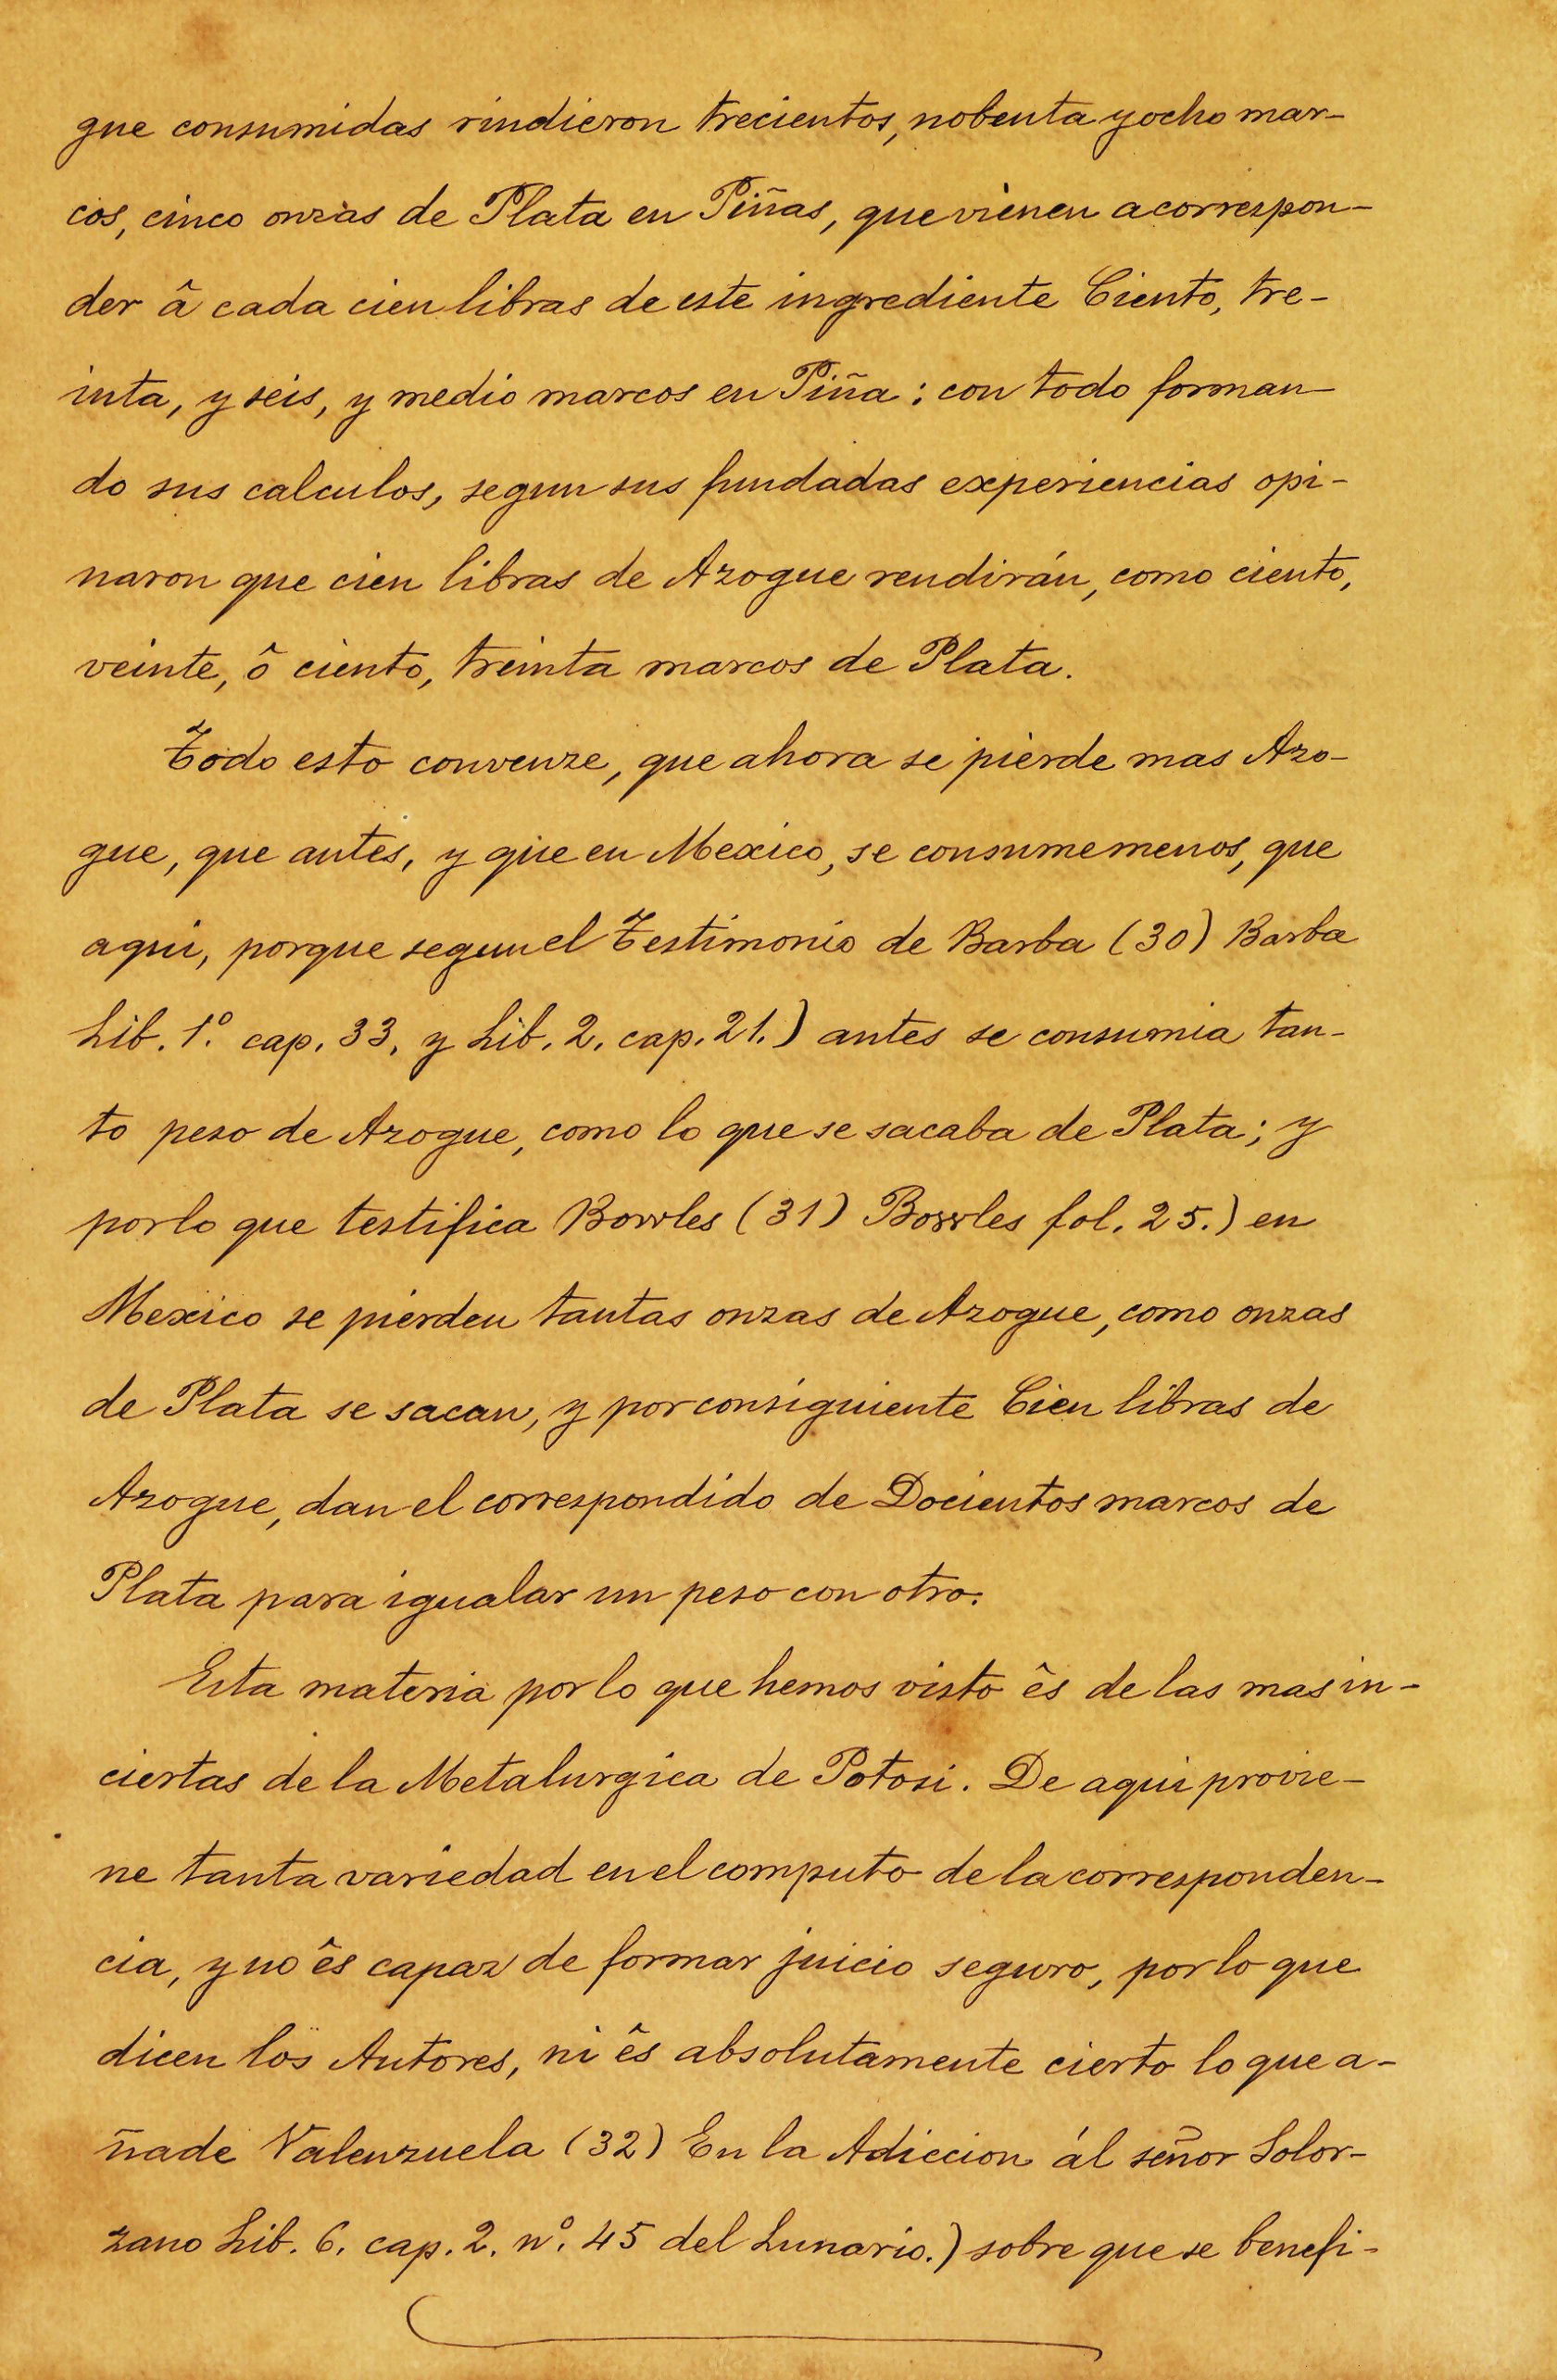 gue consumidas rindieron trecientos, nobenta y ocho mar-
cos, cinco onzas de Plata en Piñas, que vienen a correspon-
der â cada cien libras de este ingrediente Ciento, tre-
inta, y seis, y medio marcos en Piña: con todo forman-
do sus calculos, segun sus fundadas experiencias opi-
naron que cien libras de Azogue rendirán, como ciento,
veinte, ô ciento, treinta marcos de Plata.
Todo esto convenze, que ahora se pierde mas Azo-
gue, que antes, y que en Mexico, se consume menos, que
aqui, porque segun el Testimonio de Barba (30) Barba
Lib. 1º cap. 33. y Lib. 2. cap. 21.) antes se consumia tan-
to peso de Azogue, como lo que se sacaba de Plata; y
por lo que testifica Bowles (31) Bowles fol. 25.) en
Mexico se pierden tantas onzas de Azogue, como onzas
de Plata se sacan, y por consiguiente Cien libras de
Azogue, dan el correspondido de Docientos marcos de
Plata para igualar un peso con otro.
Esta materia por lo que hemos visto ês de las mas in-
ciertas de la Metalurgica de Potosi. De aqui provie-
ne tanta variedad en el computo de la corresponden-
cia, y no ês capaz de formar juicio seguro, por lo que
dicen los Autores, ni ês absolutamente cierto lo que a-
ñade Valenzuela (32) En la Adiccion ál señor Solor-
zano Lib. 6. cap. 2. nº. 45 del Lunario.) sobre que se benefi-